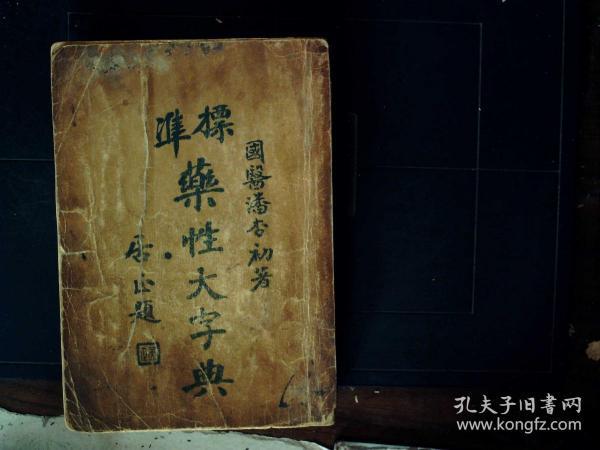 國醫潘杏初著
標準
藥性大字典
居正題
孔夫子旧書网
www.kongfz.com